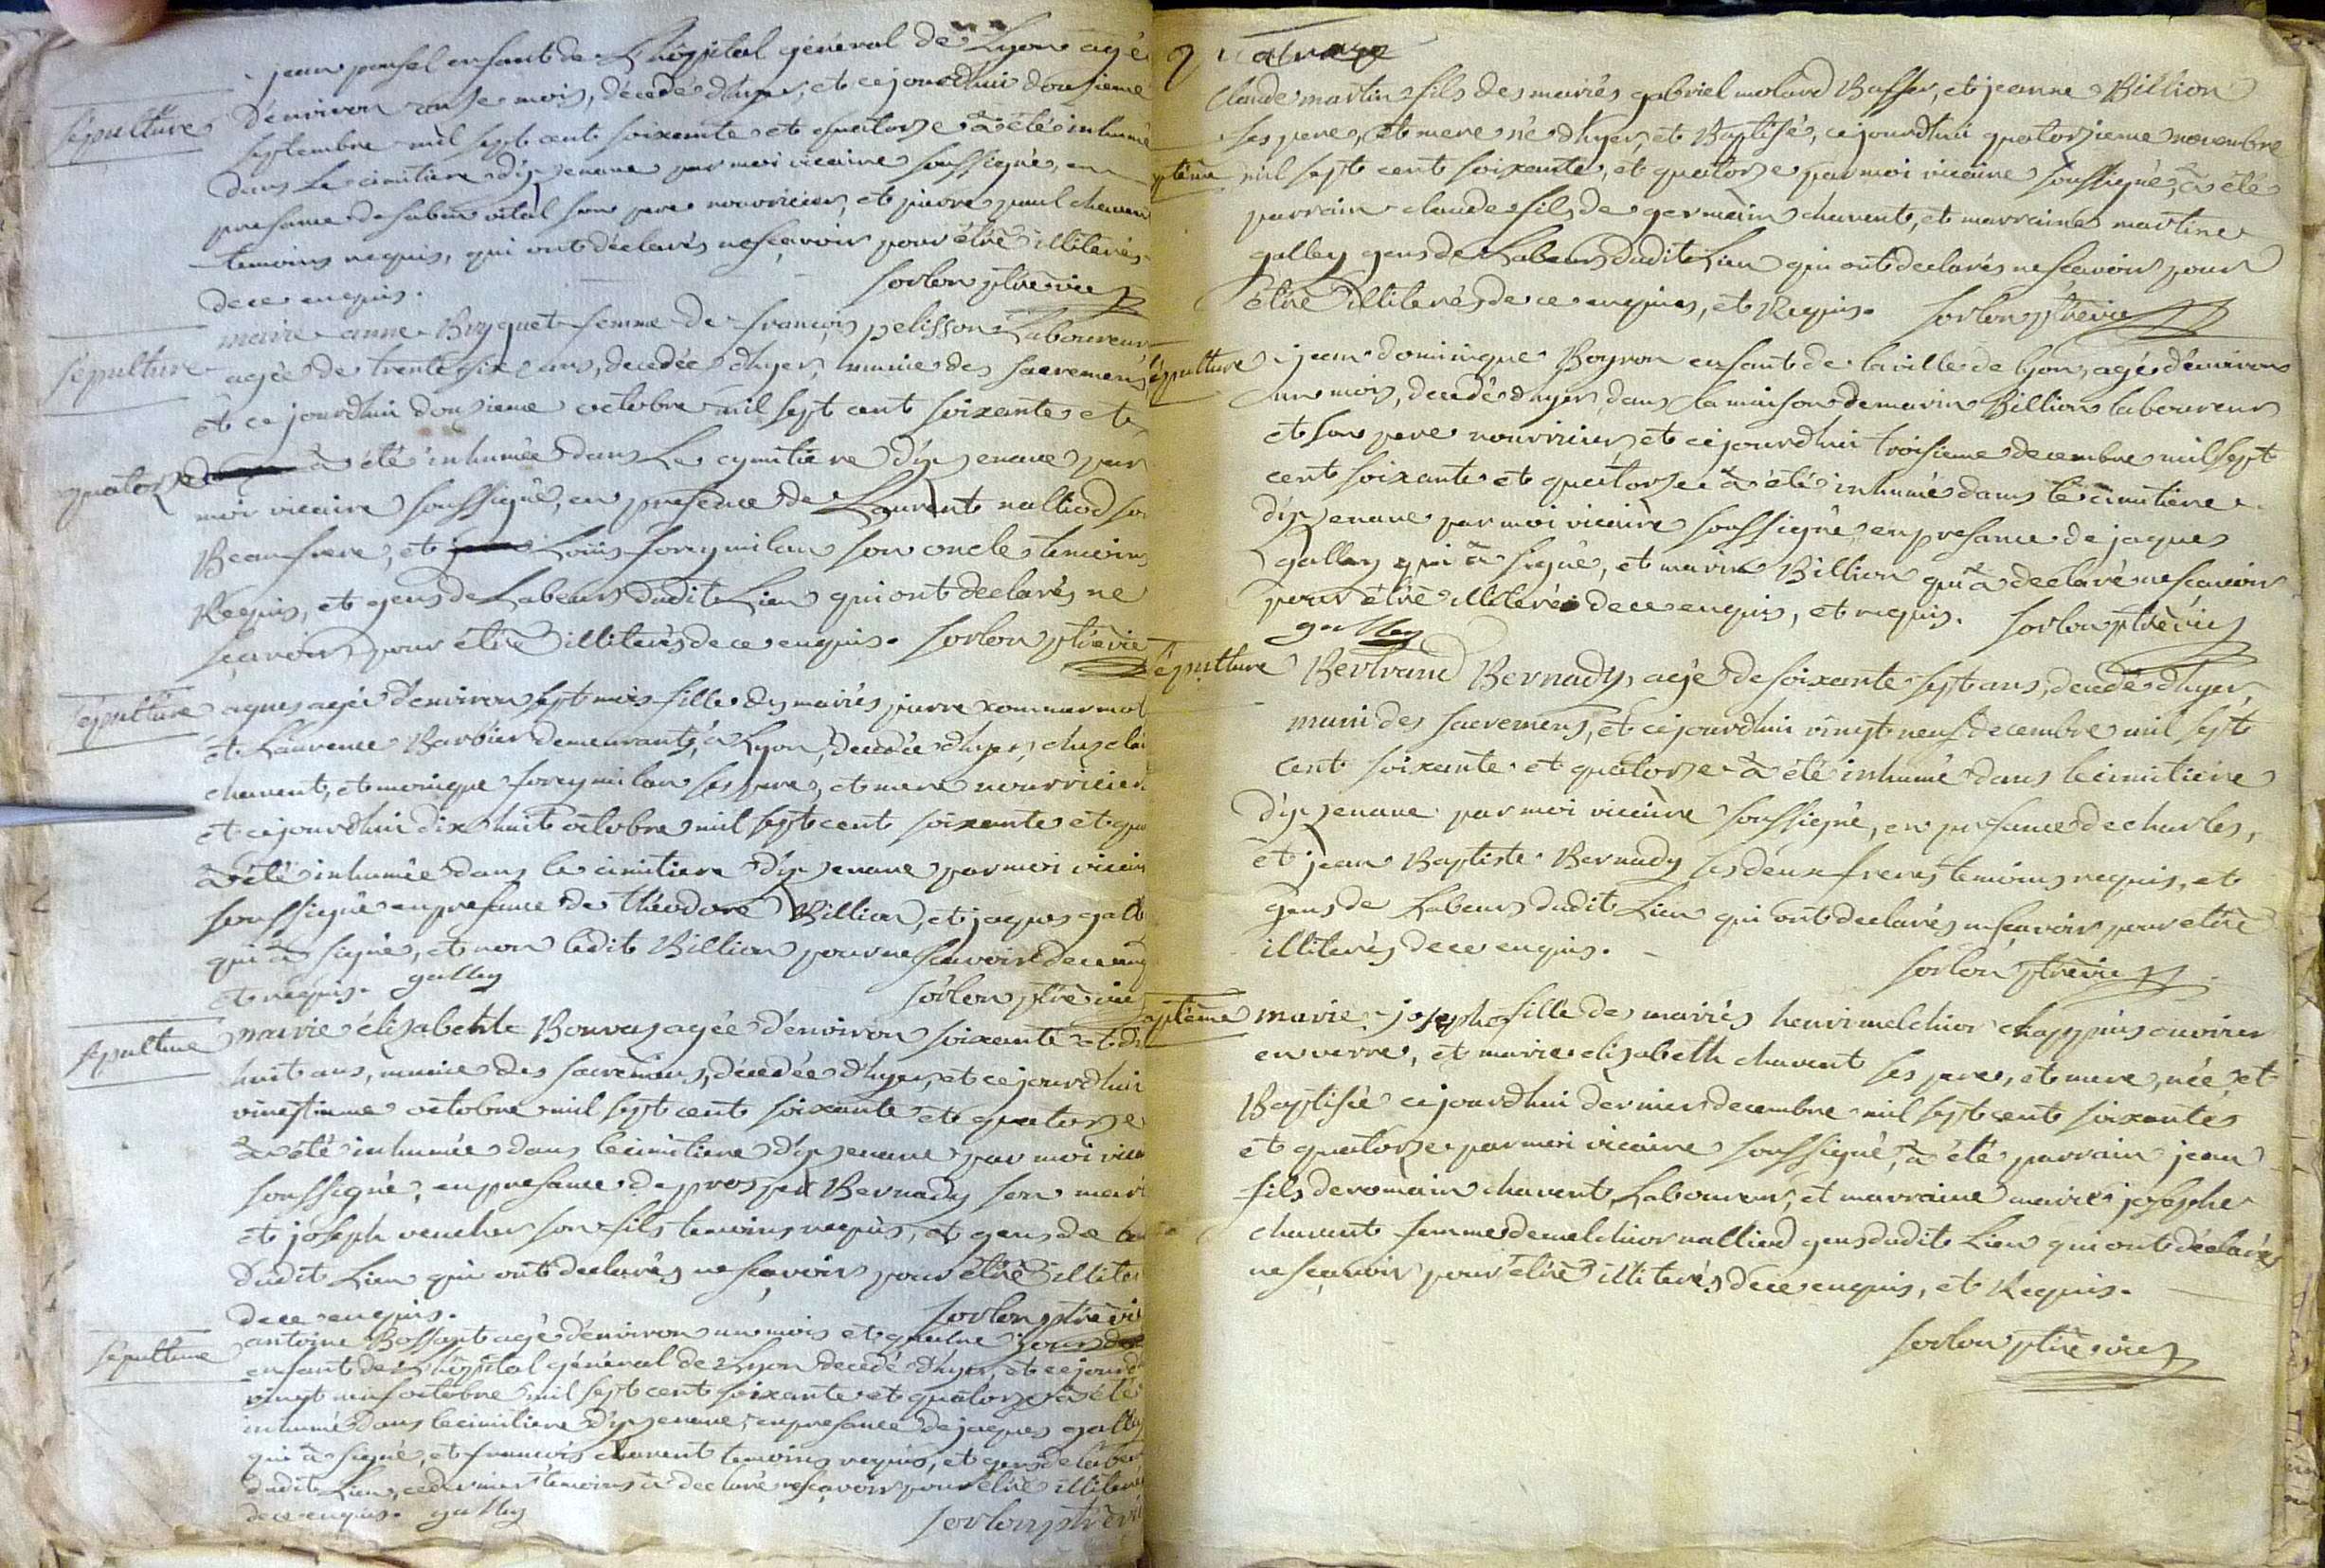 jean ponsel enfant de L'hôpital général de Lyon agé
sépulture
d'environ onze mois, décédé d'hyer, et cejourdhui dousieme
septembre mil sept cent soixante et quatorze à été inhumé
dans Le cimitiere d'yzenave par moi vicaire soussigné, en
presance de sabin vital son pere nourricier, et pierre paul chavent
temoins requis, qui ont déclarés ne sçavoir pour être illiterés
de ce enquis.
sorlon ptre vic
sépulture
marie anne Broyquet femme de françois pelisson Laboureur
agée de trente six ans, decedée d'hyer, munie des sacremens
et ce jourdhui dousieme octobre mil sept cent soixante et
quatorze à été inhumée dans Le cymitiere d'yzenave par
moi vicaire soussigné, en presence de Laurent nalliod son
Beaufrere, et Loüis foreymilan son oncle temoins
Requis, et gens de Labeurs dudit Lieu qui ont declarés ne
sçavoir pour être illiterés de ce enquis. sorlon ptre vic
sépulture
agnes agée d'environ sept mois fille des mariés pierre
et Laurence Barbier demeurants à Lyon, decedée d'hyer, chez
chavent, et monique foreymilan ses pere, et mere nourricier
et cejourdhui dix huit octobre mil sept cent soixante et
à été inhumée dans le cimitiere d'yzenave par moi vicaire
soussigné en presance de théodore Billion, et jaques galley
qui à signé, et non ledit Billion pour ne sçavoir de ce enquis
et requis. galley
sorlon ptre vic
sépulture
marie élisabeth Bouvas agée d'environ soixante et dix
huit ans, munie des sacremens, décedée d'hyer, et ce jourdhui
vingtieme octobre mil sept cent soixante et quatorze
à été inhumée dans le cimitiere d'yzenave par moi vicaire
soussigné, en presance de prosper Bernady son mari
et joseph vencher son fils temoins requis, et gens de
dudit Lieu qui ont declarés ne sçavoir pour être illiterés
de ce enquis.
sorlon ptre vic
sépulture
antoine Bossant agé d'environ un mois et quatre jours
enfant de L'hôpital général de Lyon decedé d'hyer, et ce jourd
vingt neuf octobre mil sept cent soixante et quatorze à été
inhumé dans le cimitiere d'yzenave, en presance de jaques galley
qui à signé, et françois chavent temoins requis, et gens de labeur
dudit Lieu, ce dernier temoins à declaré ne sçavoir pour être illiteré
de ce enquis. galley
sorlon ptre vic
Claude martin fils des mariés gabriel molard Buffer, et jeanne Billion
ses pere, et mere né d'hyer, et Baptisé, cejourdhui quatorzieme novembre
ptême
mil sept cent soixante, et quatorze par moi vicaire soussigné, à été
parrain claude fils de germain chavent, et marraine martine
galley gens de Labeurs dudit Lieu qui ont declarés ne sçavoir pour
être illiterés de ce enquis, et Requis. sorlon ptre vic
épulture
jean dominique Boyron enfant de la ville de Lyon, agé d'environ
un mois, decedé d'hyer, dans la maison de marin Billion laboureur
et son pere nourricier, et cejourdhui troisieme decembre mil sept
cent soixante et quatorze à été inhumé dans le cimitiere
d'yzenave par moi vicaire soussigné, en presance de jaques
galley qui à signé, et marin Billion qui à declaré ne sçavoir
pour être illiteré de ce enquis, et requis. sorlon ptre vic
galley
épulture
Bertrand Bernady, agé de soixante sept ans, decedé d'hyer,
muni des sacremens, et cejourdhui vingt neuf decembre mil sept
cent soixante et quatorze à été inhumé dans le cimitiere
d'yzenave par moi vicaire soussigné, en presance de charles,
et jean Baptiste Bernady ses deux freres temoins requis, et
gens de Labeurs dudit Lieu qui ont declarés ne sçavoir pour etre
illiterés de ce enquis.
sorlon ptre vic
aptême
marie josephe fille des mariés henri melchior chappuis ouvrier
en verre, et marie elisabeth chavent ses pere, et mere, née et
Baptisée cejourdhui dernier decembre mil sept cent soixante
et quatorze par moi vicaire soussigné, à été parrain jean
fils de romain chavent Laboureur, et marraine marie josephe
chavent femme de melchior nalliod gens dudit Lieu qui ont declarés
ne sçavoir pour être illiterés de ce enquis, et Requis.
sorlon ptre vic